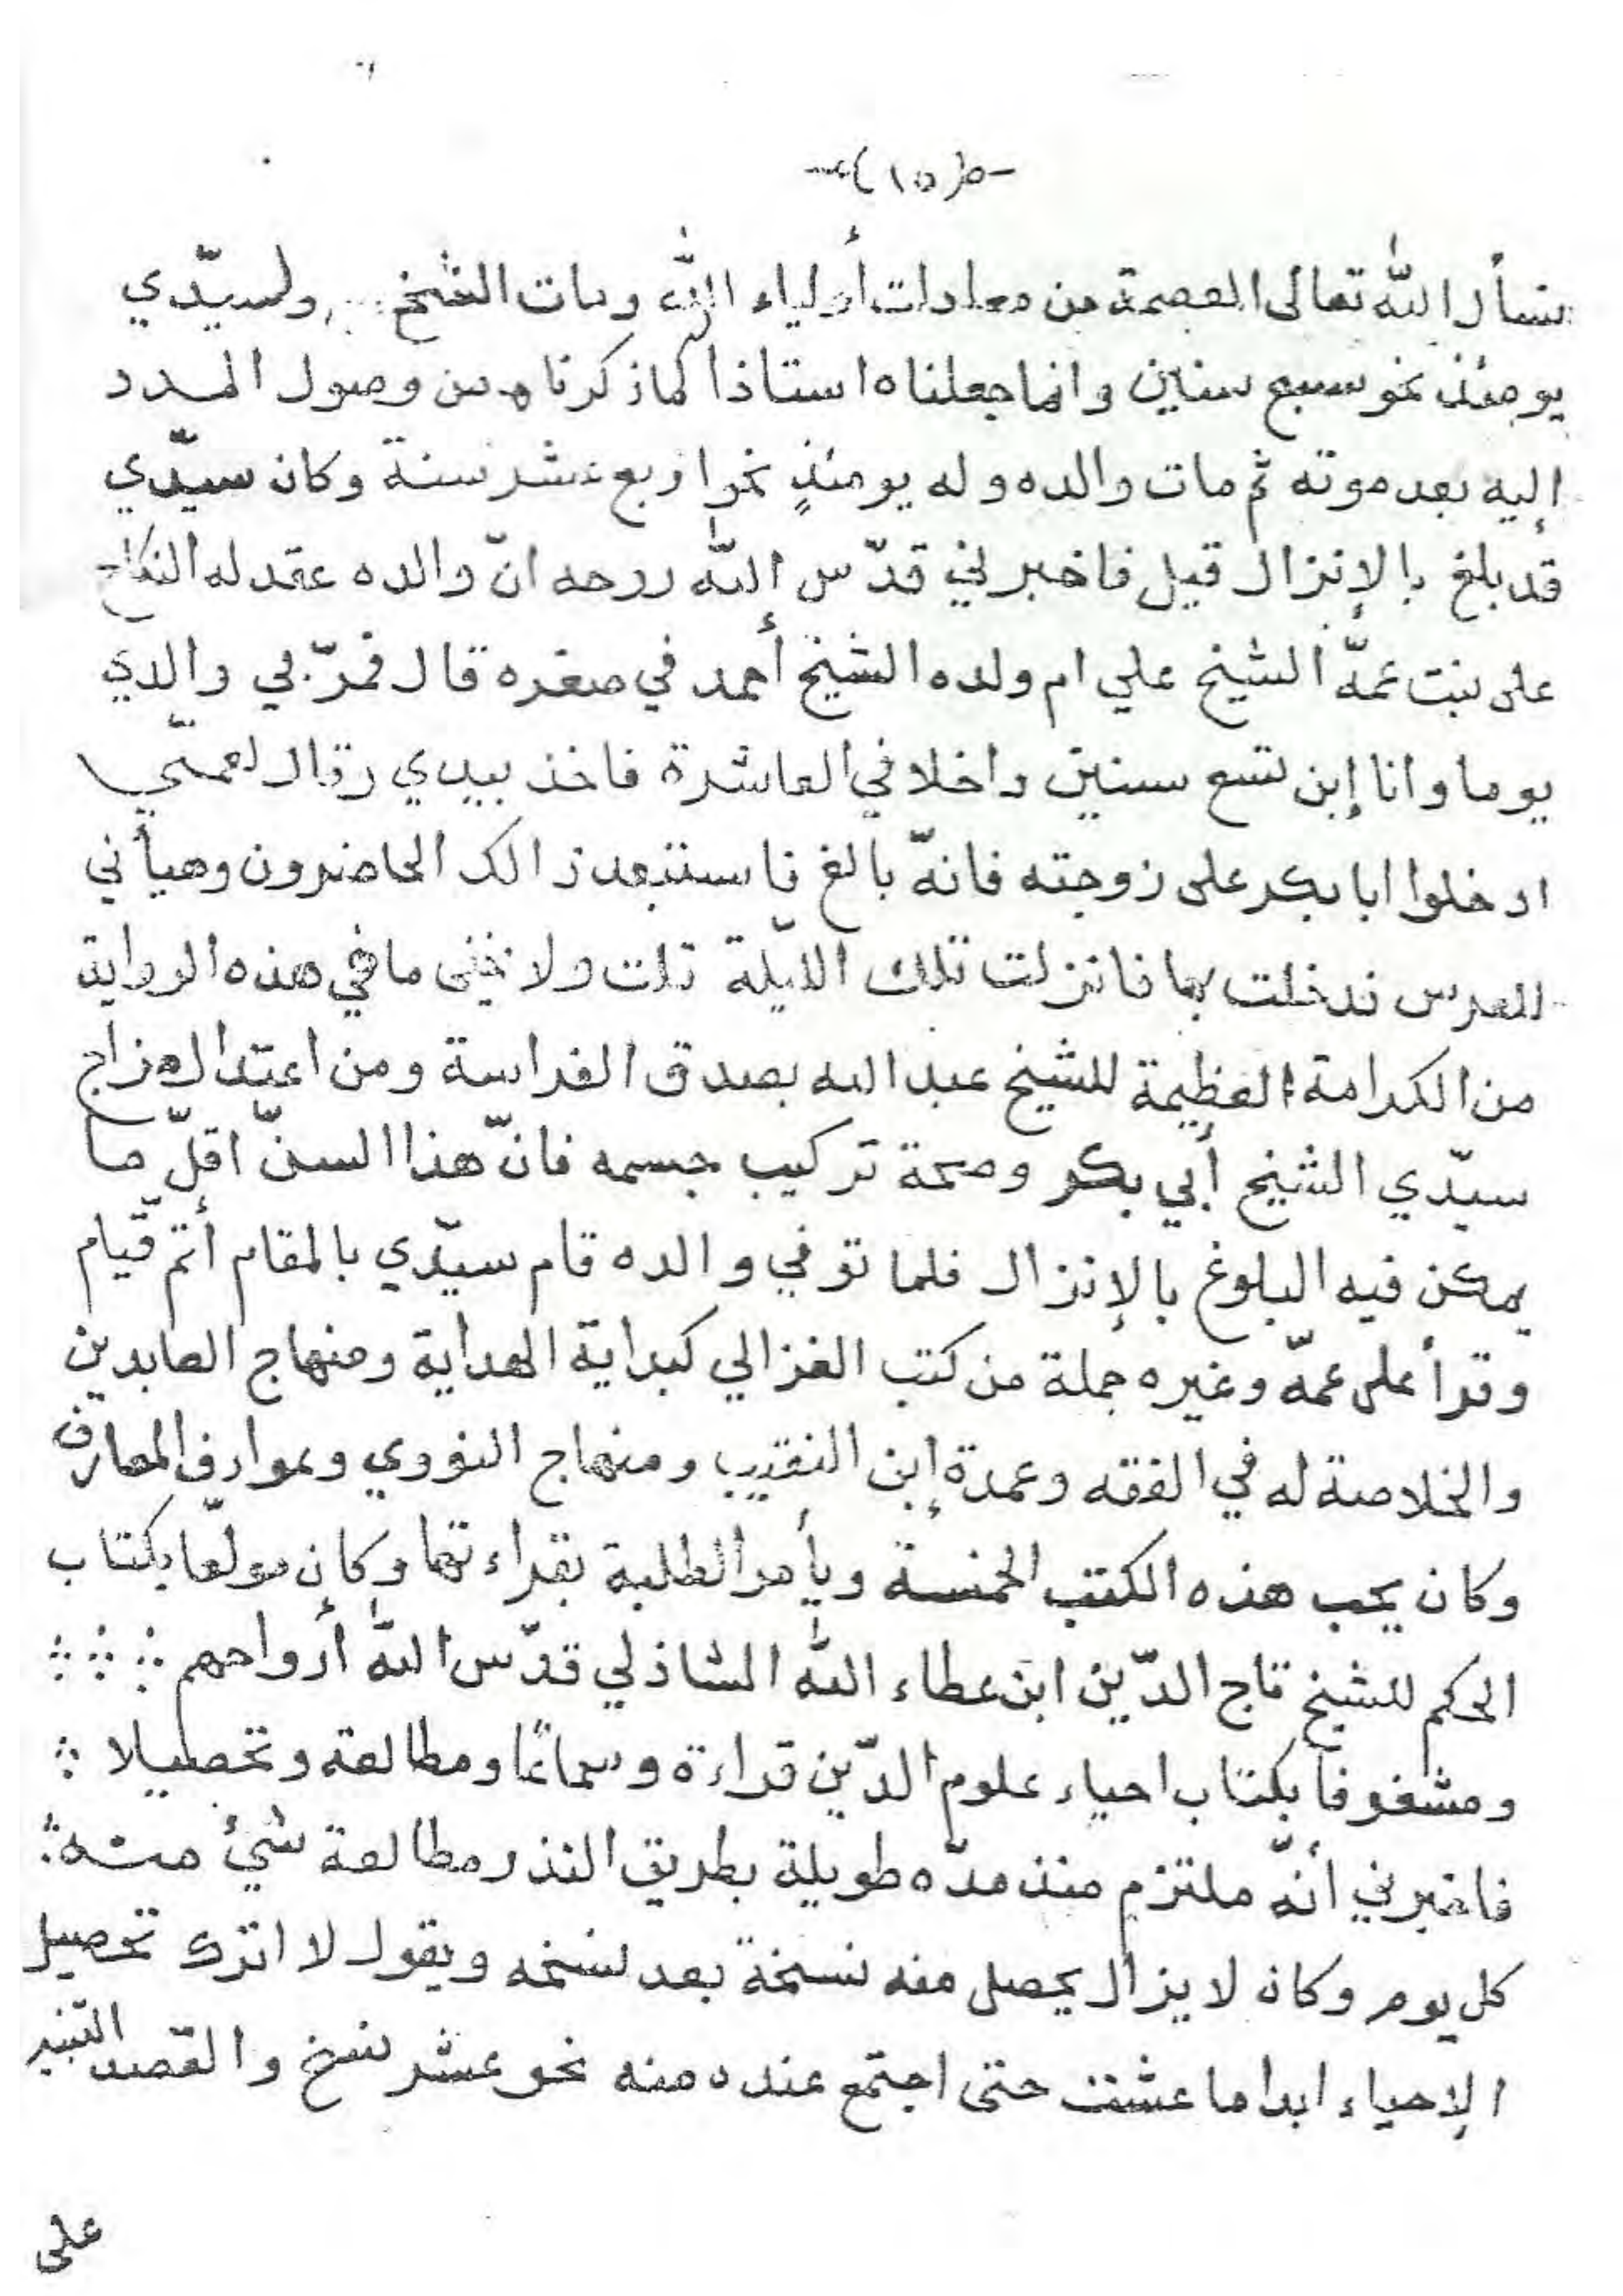 (١٥)
نسأل الله تعالى العصمة من معادات أولياء الله ومات الشيخ ولسيّدي
يومئذ نحو سبع سنين وانما جعلناه استاذا كما ذكرناه من وصول المدد
إليه بعد موته ثم مات والده وله يومئذٍ نحوا ربع عشر سنة وكان سيّدي
قد بلغ بالإنزال قيل فاخبرني قدّس الله روحه انّ والده عقد له النكاح
على بنت عمّه الشيخ علي ام ولده الشيخ أحمد في صغره قال فمرّ بي والدي
يوما وانا إبن تسع سنين داخلا في العاشرة فاخذ بيدي وقال لعمّتي
ادخلوا ابا بكر على زوجته فانّه بالغ فاستبعد ذالك الحاضرون وهيأني
للعرس فدخلت بها فانزلت تلك اليّلة قلت ولا يخفى ما في هذه الرواية
من الكرامة العظيمة للشيخ عبد الله بصدق الفراسة ومن اعتدال مزاج
سيّدي الشيخ أبي بكر وصحة تركيب جسمه فانّ هذا السنّ اقلّ ما
يمكن فيه البلوغ بالإنزال فلما توفي والده قام سيّدي بالمقام أتم قّيام
وقرأ على عمّه وغيره جملة من كتب الغزالي كبداية الهداية ومنهاج العابدين
والخلاصة له في الفقه وعمدة إبن النقيب ومنهاج النووي وعوارف المعارف
وكان يحب هذه الكتب الخمسة ويأمر الطلبة بقراءتها وكان مولّعا بكتاب
الحكم للشيخ تاج الدّين ابن عطاء الله الشاذلي قدّس الله أرواحهم
ومشغوفا بكتاب احياء علوم الدّين قراءة وسماعًا ومطالعة وتحصيلا
فاخبرني أنّه ملتزم منذ مدّه طويلة بطريق النذر مطالعة شيئ منه
كل يوم وكان لا يزال يحصل منه نسخة بعد نسخه ويقول لا اترك تحصيل
الإحياء ابدا ما عشت حتى اجتمع عنده منه نحو عشر نسخ والقصد
على